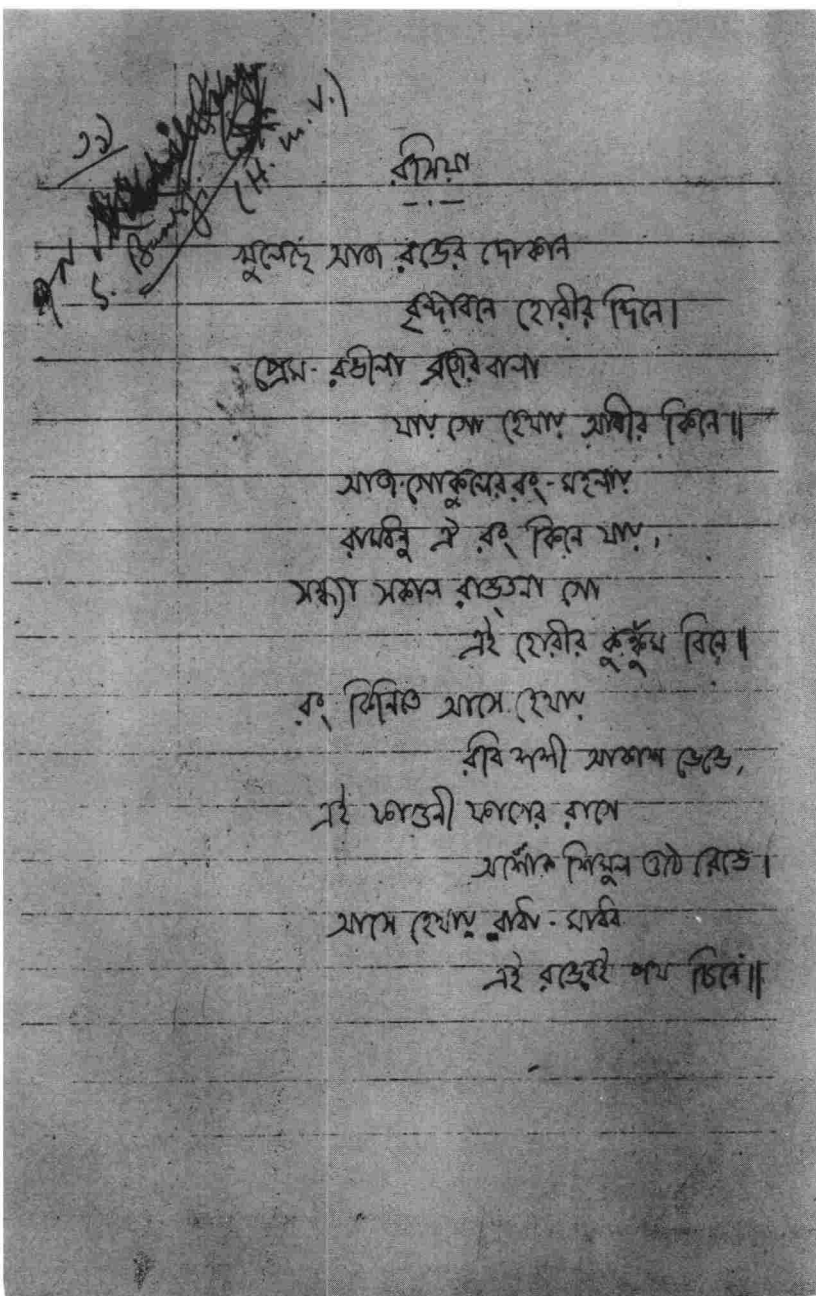 ১১
S.
(H. M. V.)
রসিয়া
খুলেছে আজ রঙের দোকান
বৃন্দাবনে হোরীর দিনে।
প্রেম-রঙীলা ব্রজের বালা
যায় গো হেথায় আবীর কিনে॥
আজ গোকুলের রং-মহলায়
রামধনু ঐ রং কিনে যায়,
সন্ধ্যা সকাল রাঙত না গো
এই হোরীর কুঙ্কুম বিনে॥
রং কিনিতে আসে হেথায়
রবি শশী আকাশ ভেঙে,
এই ফাগুনী ফাগের রাগে
অশোক শিমুল ওঠে রেঙে।
আসে হেথায় রাধা-মাধব
এই রঙেরই পথ চিনে॥